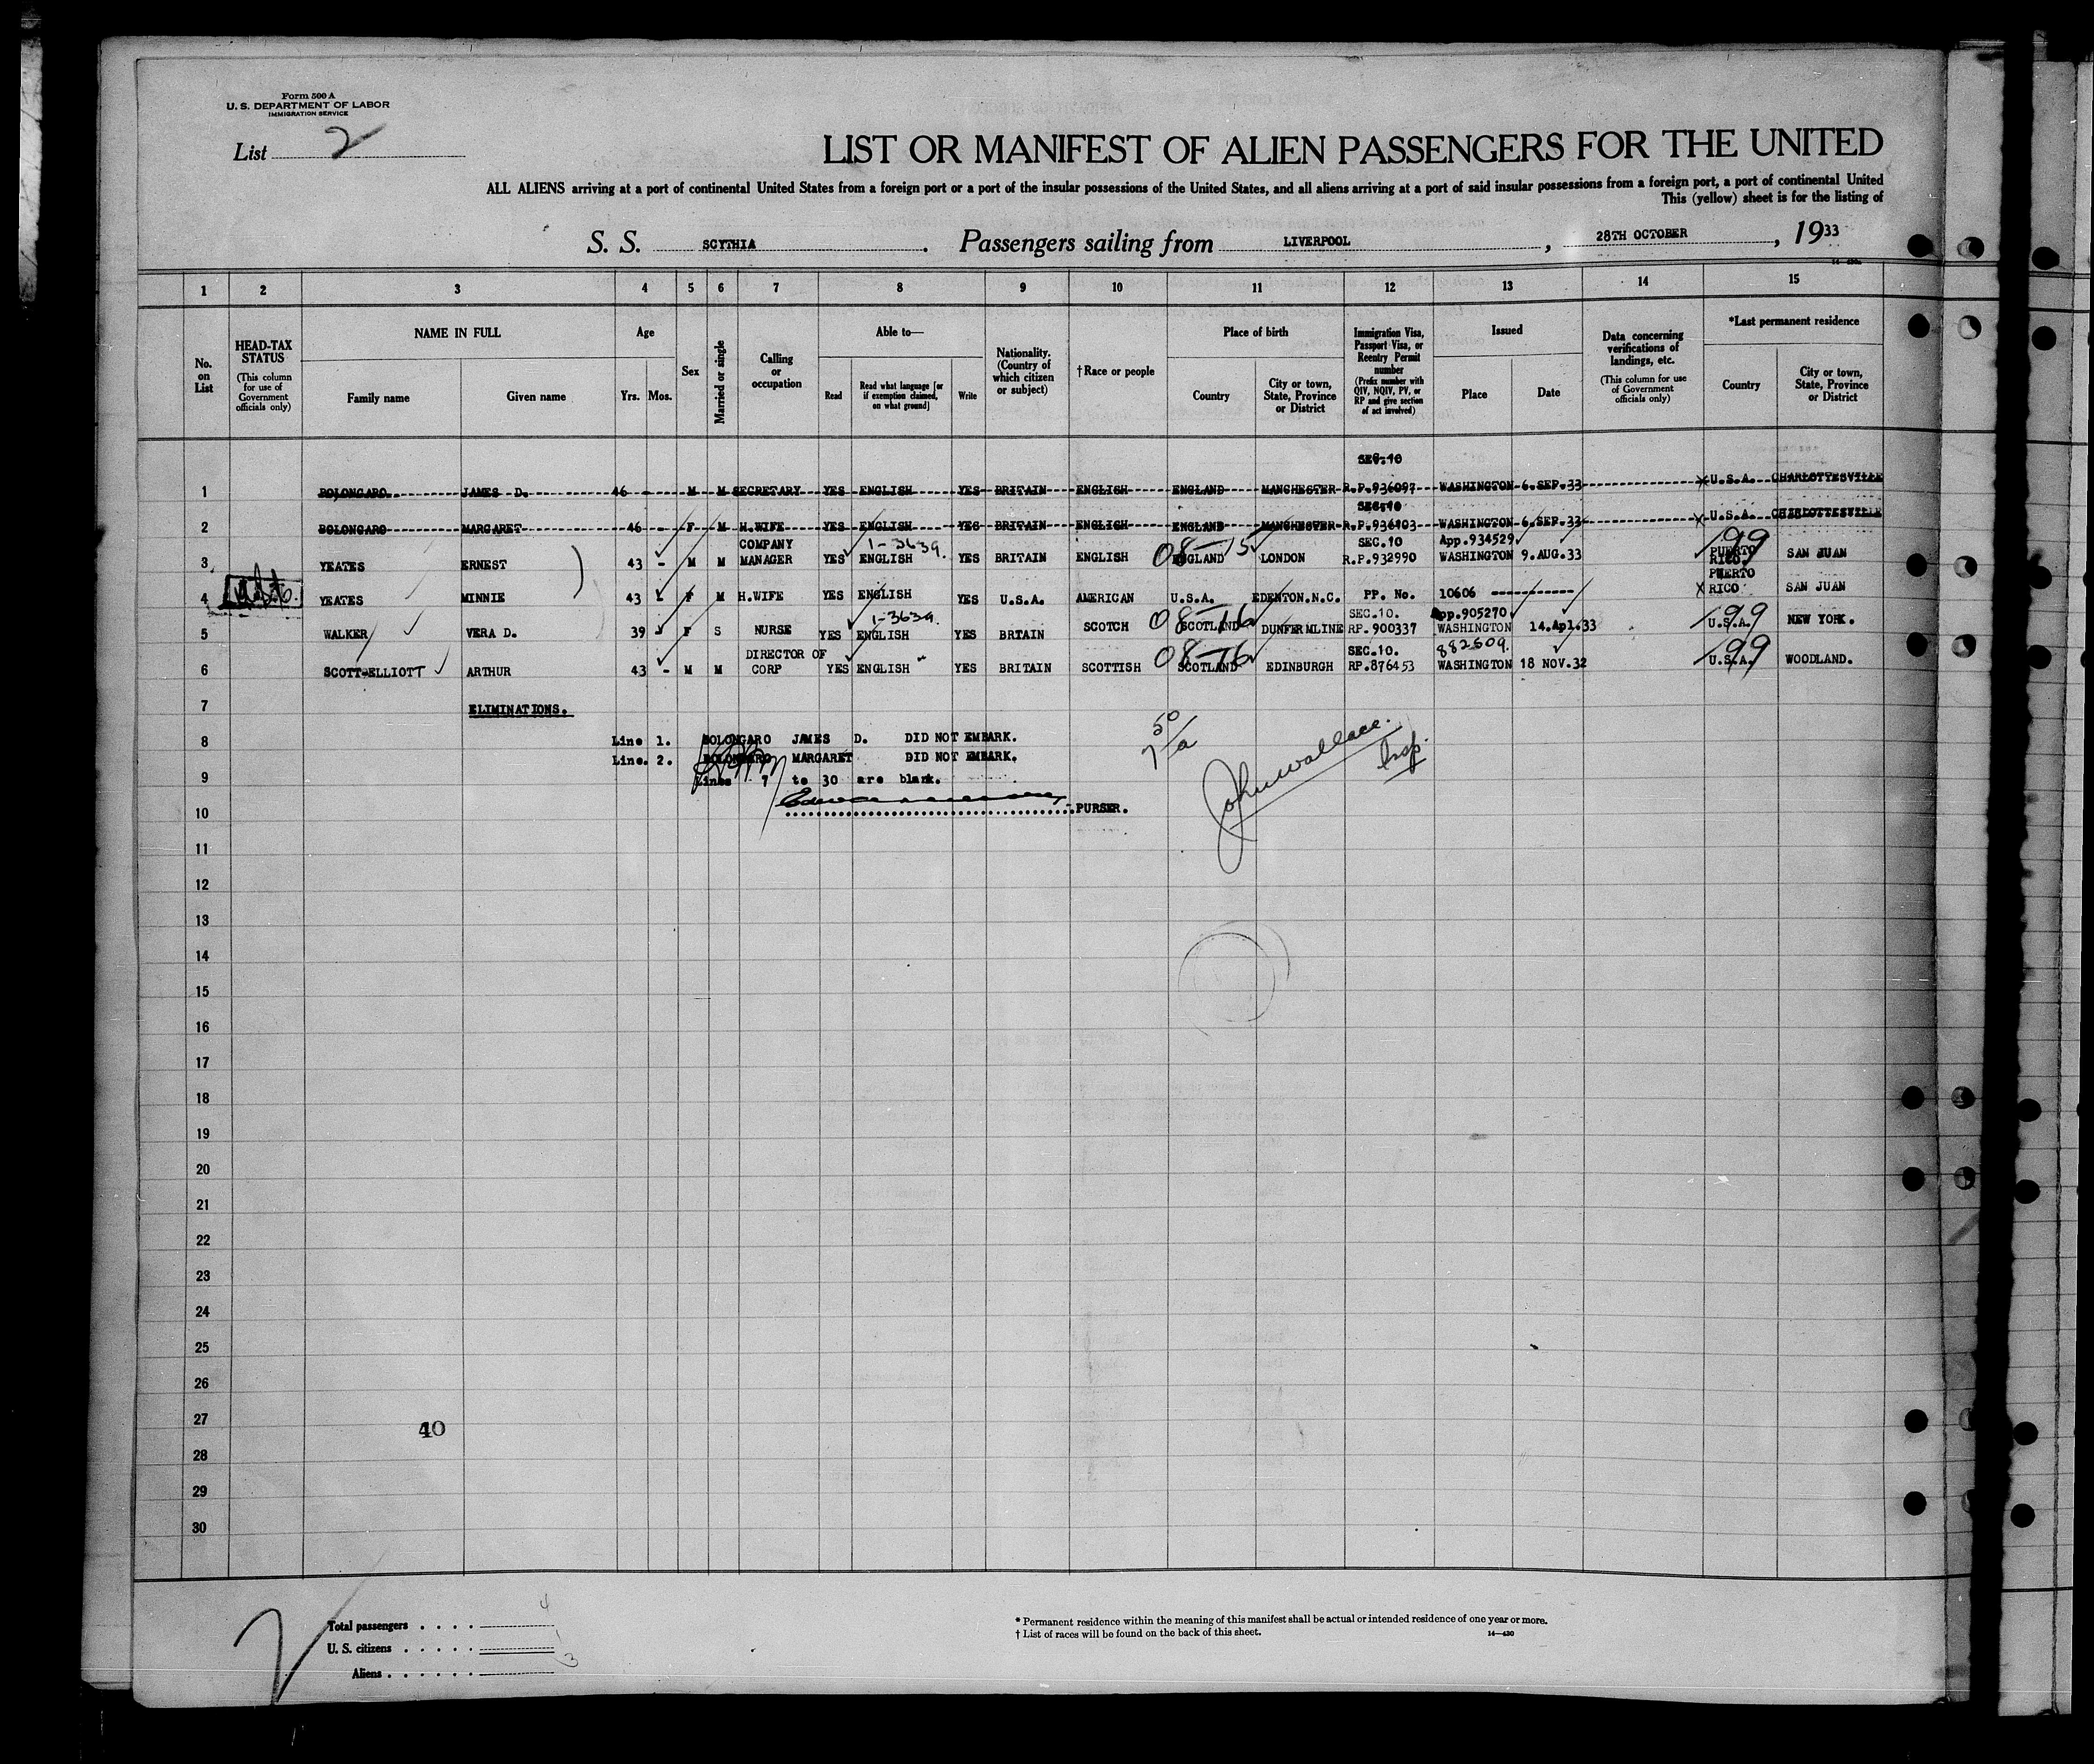 Form 500 A
U. S. DEPARTMENT OF LABOR
IMMIGRATION SERVICE
List 2
LIST OR MANIFEST OF ALIEN PASSENGERS FOR THE UNITED
ALL ALIENS arriving at a port of continental United States from a foreign port or a port of the insular possessions of the United States, and all aliens arriving at a port of said insular possessions from a foreign port, a port of continental United
This (yellow) sheet is for the listing of
S. S. SCYTHIA. Passengers sailing from LIVERPOOL, 28TH OCTOBER, 1933
1 2 3 4 5 6 7 8 9 10 11 12 13 14 15
No. on List
HEAD-TAX STATUS (This column for use of Government officials only)
NAME IN FULL
Family name Given name
Age
Yrs. Mos.
Sex
Married or single
Calling or occupation
Able to—
Read Read what language [or if exemption claimed, on what ground] Write
Nationality. (Country of which citizen or subject)
†Race or people
Place of birth
Country City or town, State, Province or District
Immigration Visa, Passport Visa, or Reentry Permit number (Prefix number with QIV, NQIV, PV, or RP and give section of act involved)
Issued
Place Date
Data concerning verifications of landings, etc. (This column for use of Government officials only)
*Last permanent residence
Country City or town, State, Province or District
SEC.10
1 BOLONGARO JAMES D. 46 - M M SECRETARY YES ENGLISH YES BRITAIN ENGLISH ENGLAND MANCHESTER R.P.936097 WASHINGTON 6.SEP.33 U.S.A. CHARLOTTESVILLE
SEC.10
2 BOLONGARO MARGARET 46 - F M H.WIFE YES ENGLISH YES BRITAIN ENGLISH ENGLAND MANCHESTER R.P.936103 WASHINGTON 6.SEP.33 U.S.A. CHARLOTTESVILLE
COMPANY 1-3639. 08-15 SEC.10 App.934529 199
3 YEATES ERNEST 43 - M M MANAGER YES ENGLISH YES BRITAIN ENGLISH ENGLAND LONDON R.P.932990 WASHINGTON 9.AUG.33 PUERTO RICO SAN JUAN
4 YEATES MINNIE 43 - F M H.WIFE YES ENGLISH YES U.S.A. AMERICAN U.S.A. EDENTON.N.C. PP. No. 10606 PUERTO RICO SAN JUAN
1-3639. 08-16 SEC.10. App.905270 199
5 WALKER VERA D. 39 - F S NURSE YES ENGLISH YES BRTAIN SCOTCH SCOTLAND DUNFERMLINE RP.900337 WASHINGTON 14.Apl.33 U.S.A. NEW YORK.
DIRECTOR OF 08-76 SEC.10. 882609. 199
6 SCOTT-ELLIOTT ARTHUR 43 - M M CORP YES ENGLISH YES BRITAIN SCOTTISH SCOTLAND EDINBURGH RP.876453 WASHINGTON 18 NOV.32 U.S.A. WOODLAND.
7 ELIMINATIONS.
8 Line 1. BOLONGARO JAMES D. DID NOT EMBARK.
Line. 2. BOLONGARO MARGARET DID NOT EMBARK.
9 Lines 7 to 30 are blank.
John Wallace. Insp.
10 PURSER.
11
12
13
14
15
16
17
18
19
20
21
22
23
24
25
26
27
40
28
29
30
2
Total passengers 4
U. S. citizens 1
Aliens 3
* Permanent residence within the meaning of this manifest shall be actual or intended residence of one year or more.
† List of races will be found on the back of this sheet.
14—430